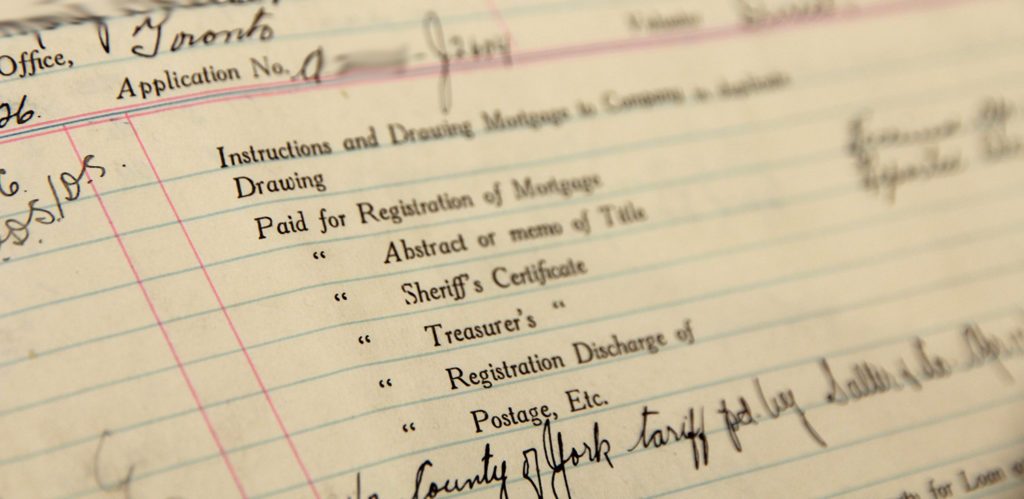 Office, Toronto
Application No. a
26.
Instructions and Drawing Mortgage to Company in duplicate
Drawing
Paid for Registration of Mortgage
“ Abstract or memo of Title
“ Sheriff's Certificate
“ Treasurer's “
“ Registration Discharge of
“ Postage, Etc.
County of York tariff pd. by
for Loan